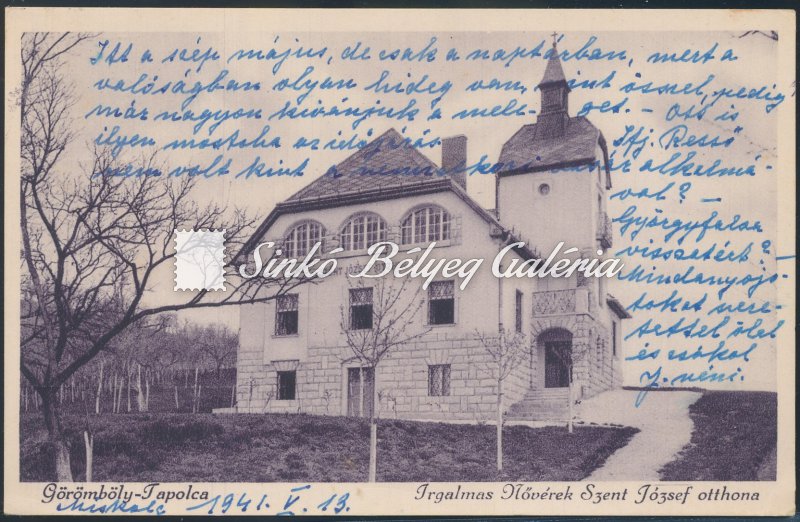 Itt a szép május, de csak a naptárban, mert a
valóságban olyan hideg van, mint ősszel, pedig
már nagyon kivánjuk a meleget. - Ott is
ilyen mostoha az időjárás Ifj. Ressó
nem volt kint a nemzetközi vásár alkalmá-
val? -
Györgyfalva
visszatért? -
Mindanyájo-
tokat sze-
retettel ölel
és csókol
J. néni.
Sinkó Bélyeg Galéria
Görömböly-Tapolca
Irgalmas Nővérek Szent József otthona
Miskolc 1941. V. 13.